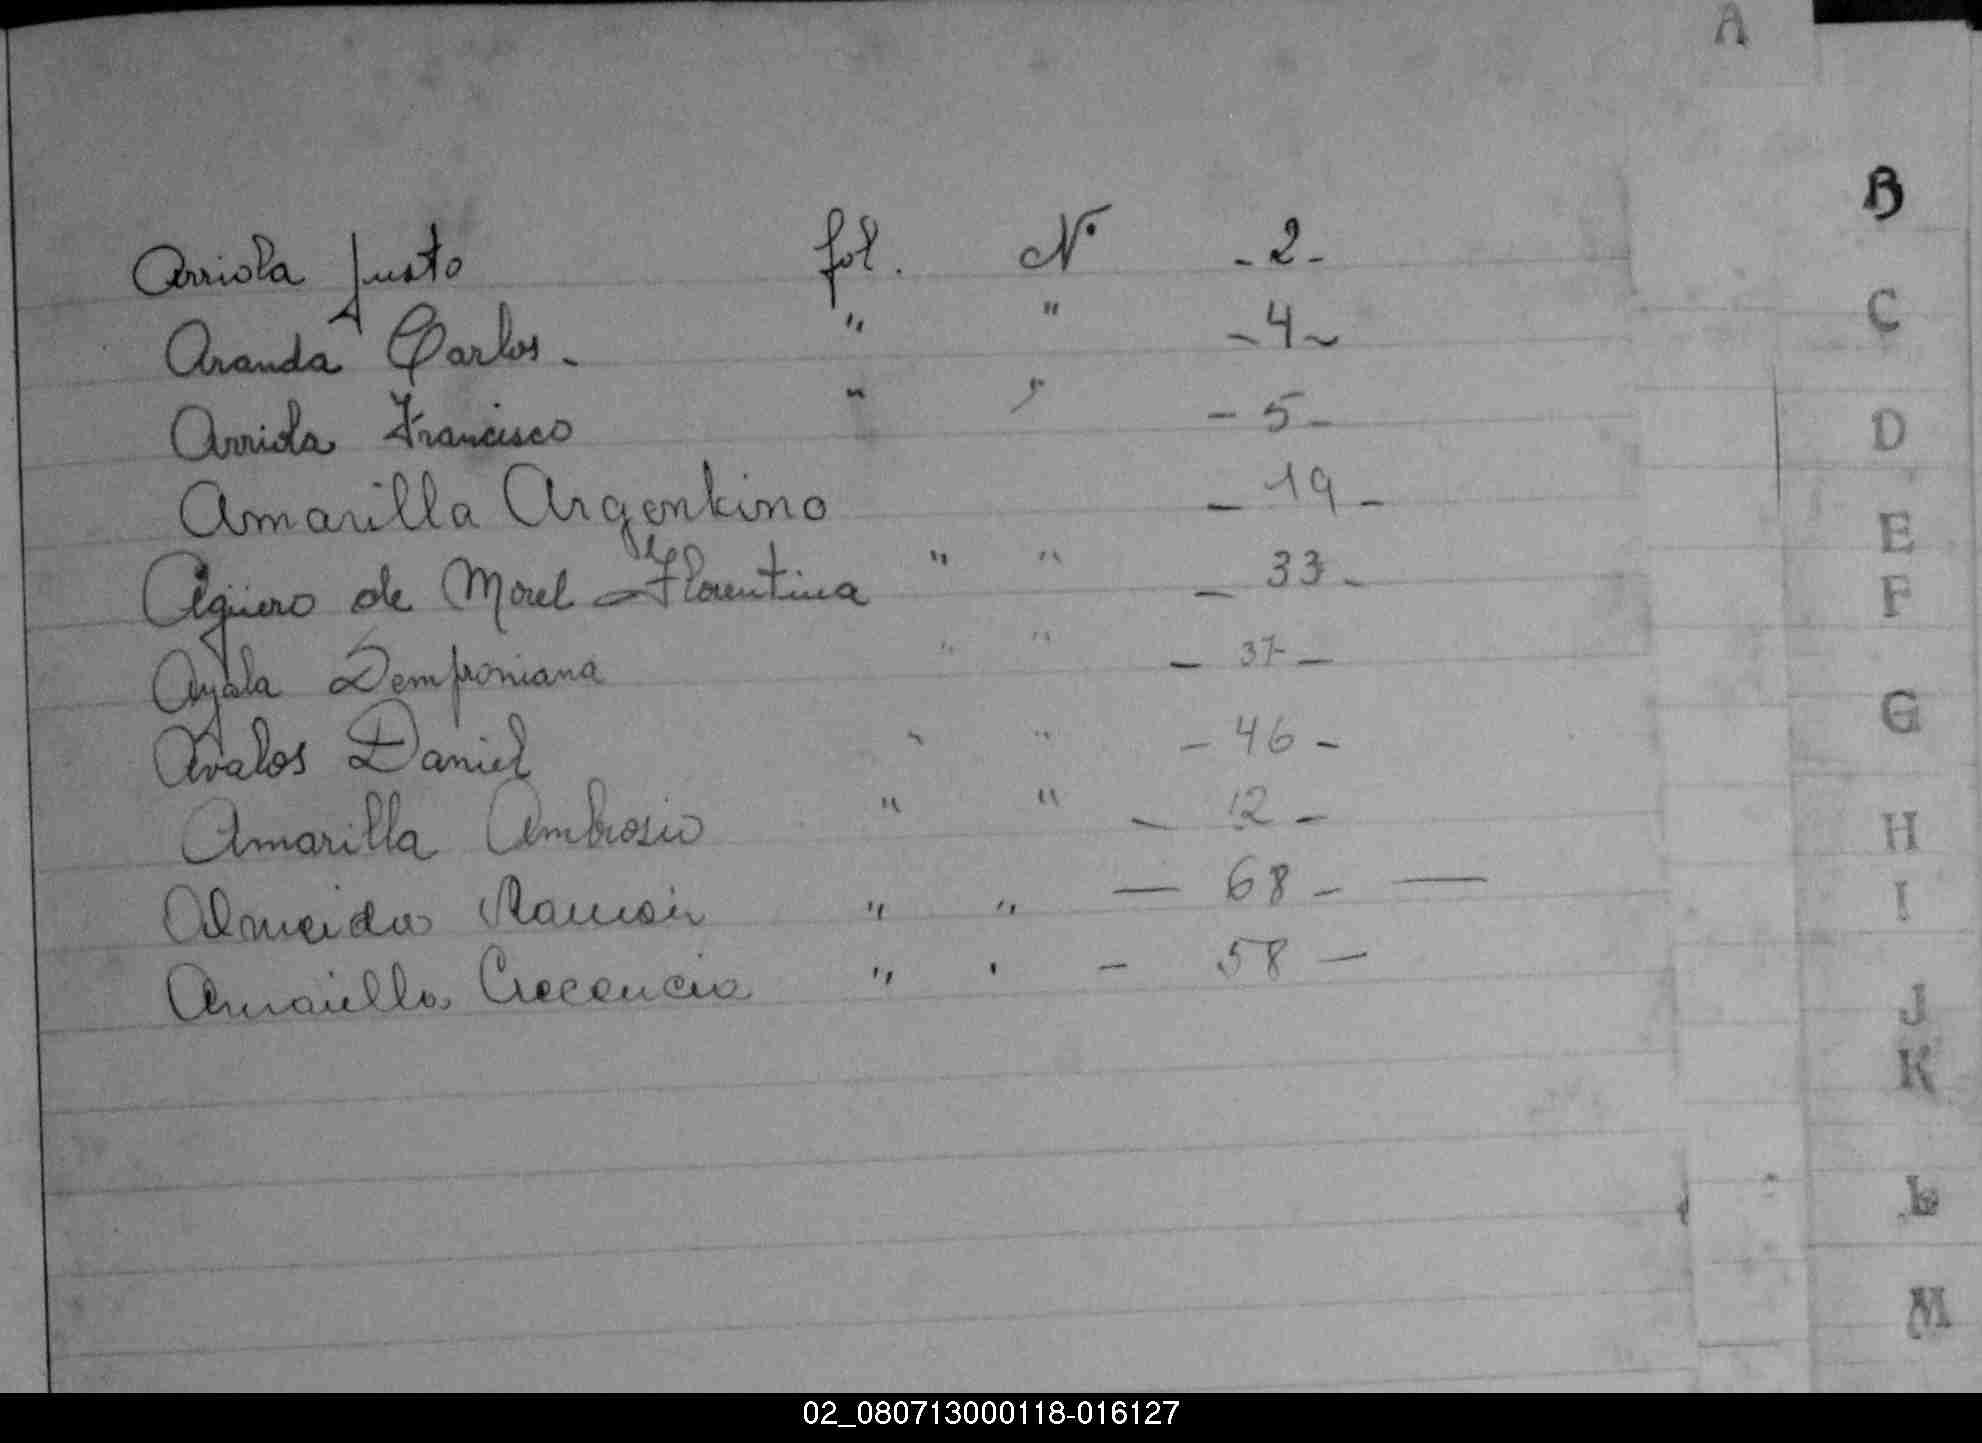 A
Arriola Justo fol. Nº - 2 -
Aranda Carlos - " " - 4 -
Arriola Francisco " " - 5 -
Amarilla Argentino - 19 -
Agüero de Morel Florentina " " - 33 -
Ayala Semproniana " " - 37 -
Avalos Daniel " " - 46 -
Amarilla Ambrosio " " - 12 -
Almeida Ramón " " - 68 - -
Amarilla Crecencia " " - 58 -
B
C
D
E
F
G
H
I
J
K
L
M
02_080713000118-016127